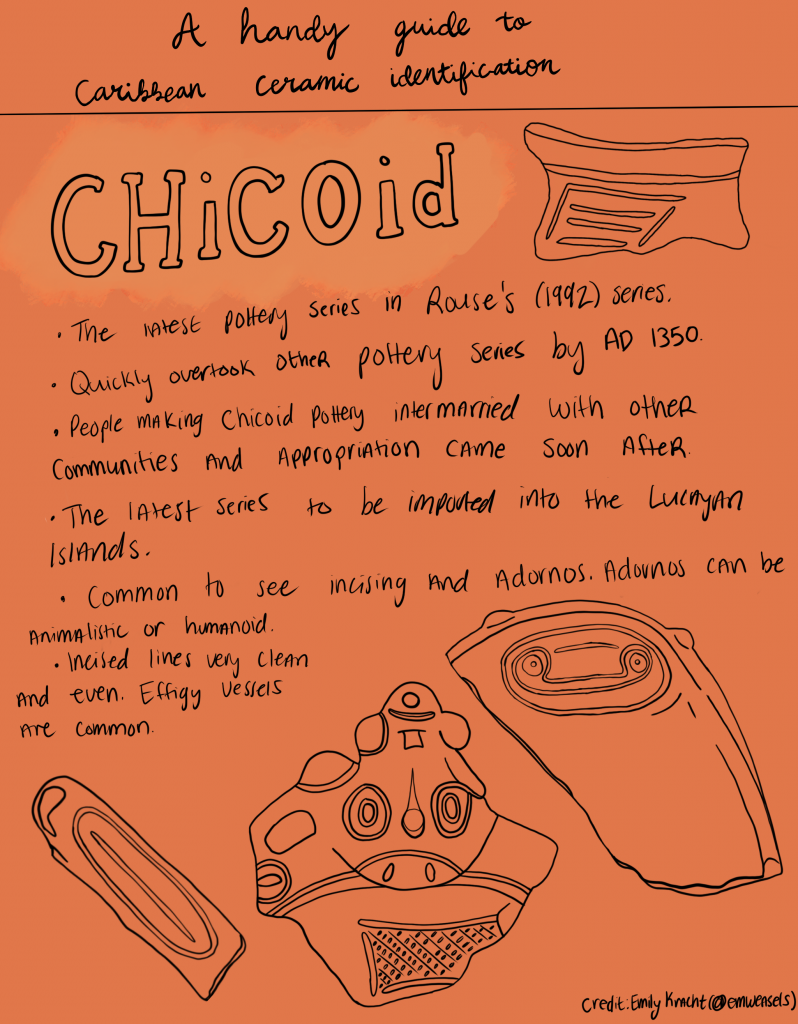 A handy guide to
Caribbean ceramic identification
CHiCOid
• The latest pottery series in Rouse's (1992) series.
• Quickly overtook other pottery series by AD 1350.
• People making Chicoid pottery intermarried with other
communities and appropriation came soon after.
• The latest series to be imported into the Lucayan
Islands.
• Common to see incising and Adornos. Adornos can be
animalistic or humanoid.
• Incised lines very clean
and even. Effigy vessels
are common.
Credit: Emily Kracht (@emwensels)